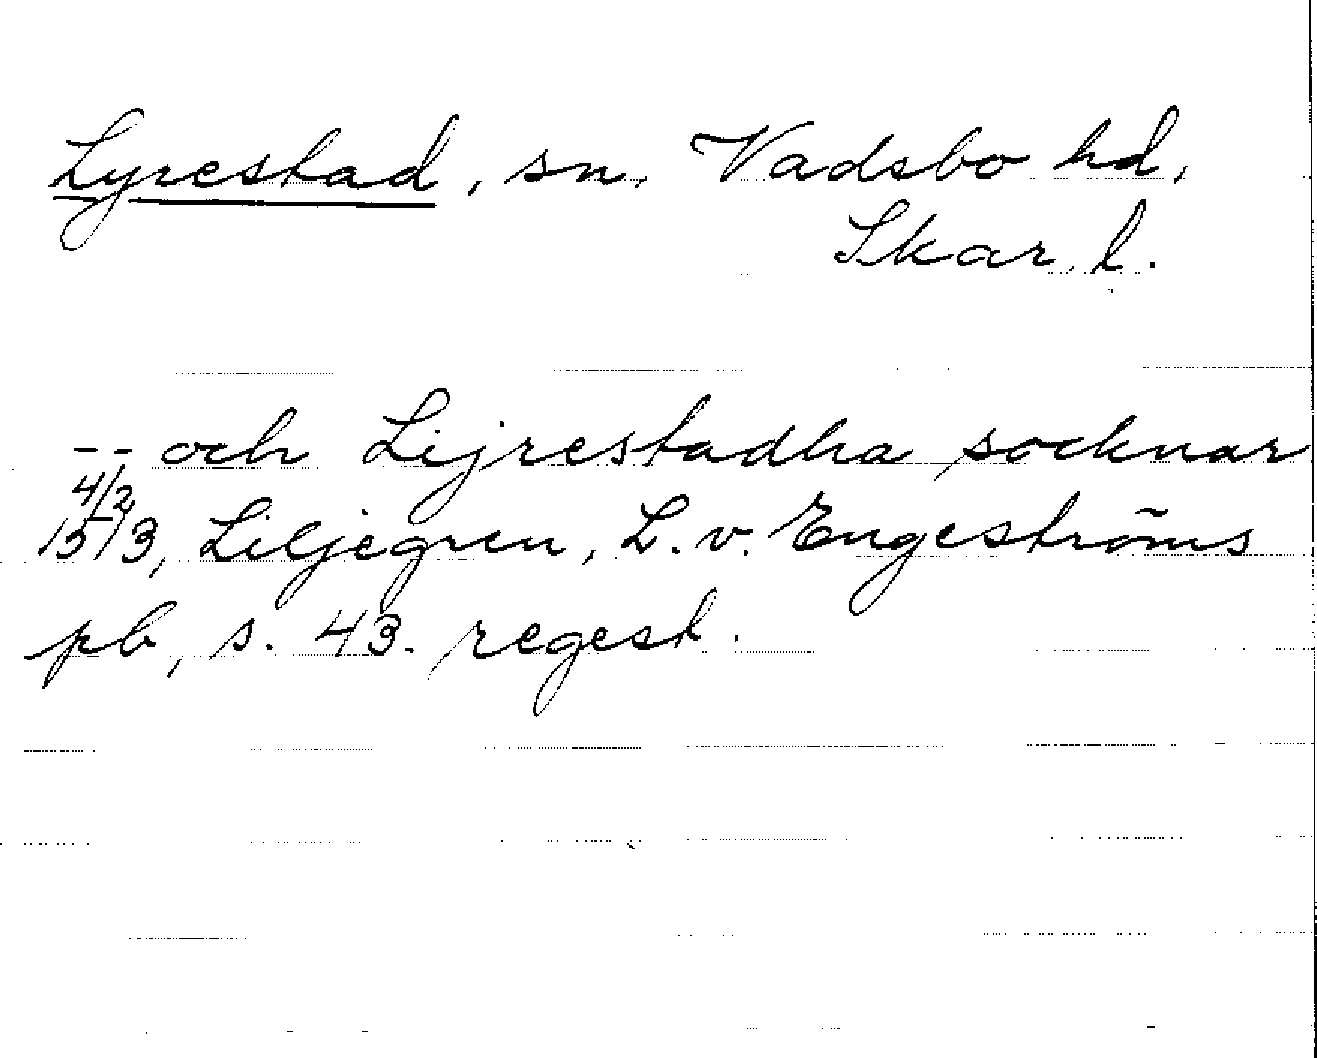 Lyrestad, sn. Vadsbo hd,
Skar. l.
-- och Lijrestadha socknar
4/2
1573, Liljegren, L. v. Engeströms
pb, s. 43. regest.